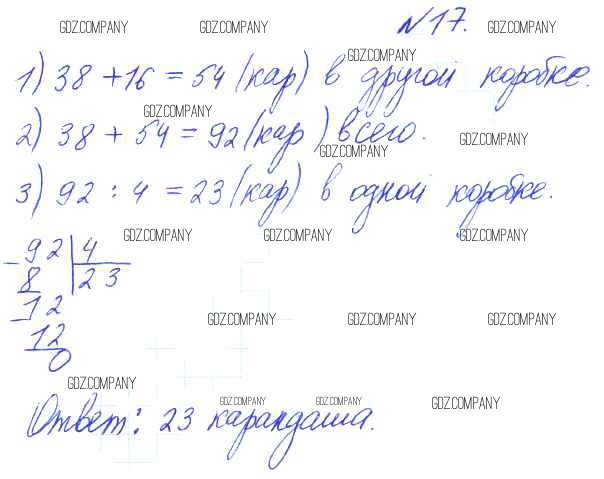 GDZ.COMPANY GDZ.COMPANY №17. GDZ.COMPANY
GDZ.COMPANY
1) 38 + 16 = 54 (кар) в другой коробке.
GDZ.COMPANY
2) 38 + 54 = 92 (кар) всего.
GDZ.COMPANY GDZ.COMPANY
3) 92 : 4 = 23 (кар) в одной коробке.
GDZ.COMPANY GDZ.COMPANY GDZ.COMPANY
92 | 4
8 | 23
12
12
0
GDZ.COMPANY GDZ.COMPANY GDZ.COMPANY
GDZ.COMPANY
GDZ.COMPANY GDZ.COMPANY GDZ.COMPANY
Ответ: 23 карандаша.